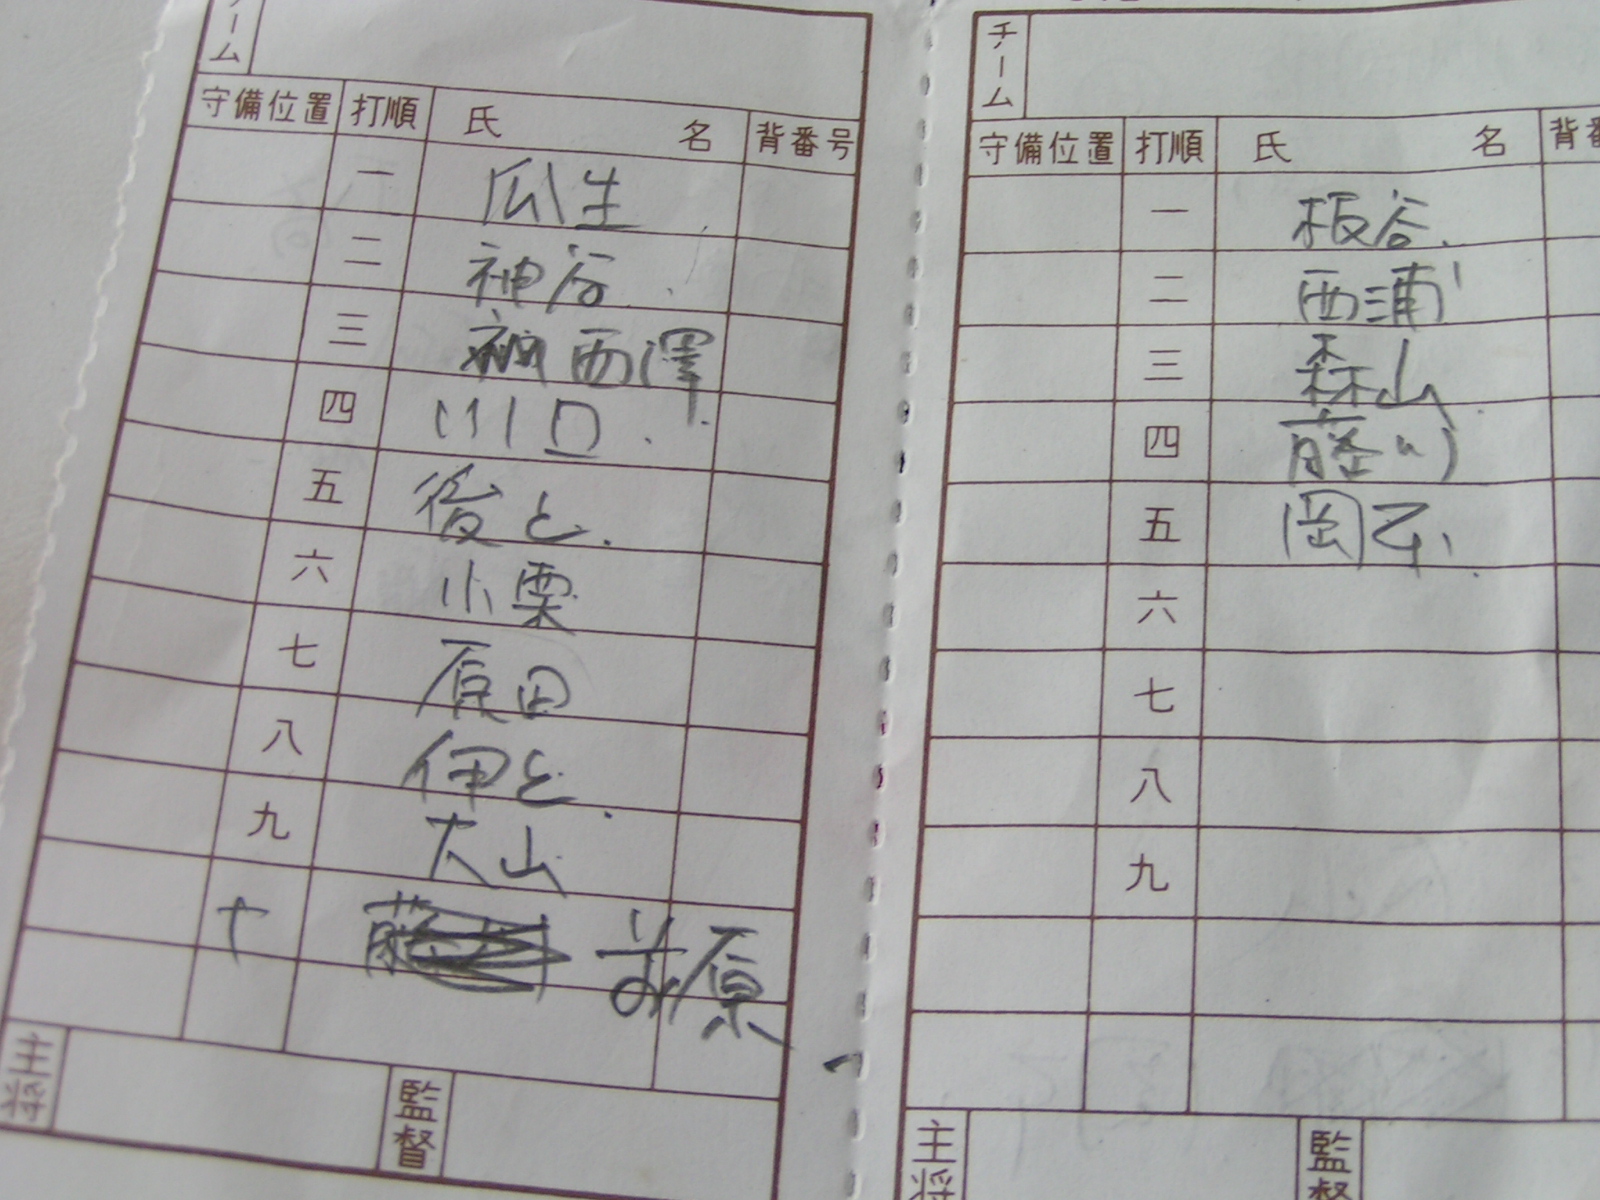 チーム
守備位置 打順 氏名 背番号
一 瓜生
二 神谷
三 西澤
四 川口
五 後と
六 小栗
七 原田
八 伊と
九 大山
十 原
主将 監督
チーム
守備位置 打順 氏名 背番
一 板谷
二 西浦
三 森山
四 藤い
五 岡本
六
七
八
九
主将 監督